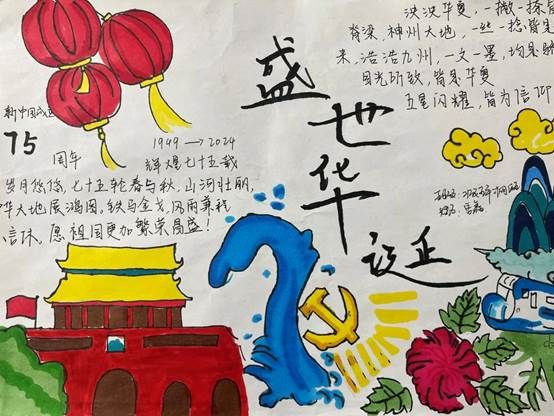 泱泱华夏，一撇一捺皆
脊梁，神州大地，一丝一捻皆
来，浩浩九州，一文一墨，均是
目光所致，皆是华夏
五星闪耀，皆为信仰
盛世华诞
新中国成立
75
周年
1949 → 2024
辉煌七十五载
岁月悠悠，七十五轮春与秋，山河壮丽，
华大地展鸿图，铁马金戈，风雨兼程
愿祖国更加繁荣昌盛！
班级：